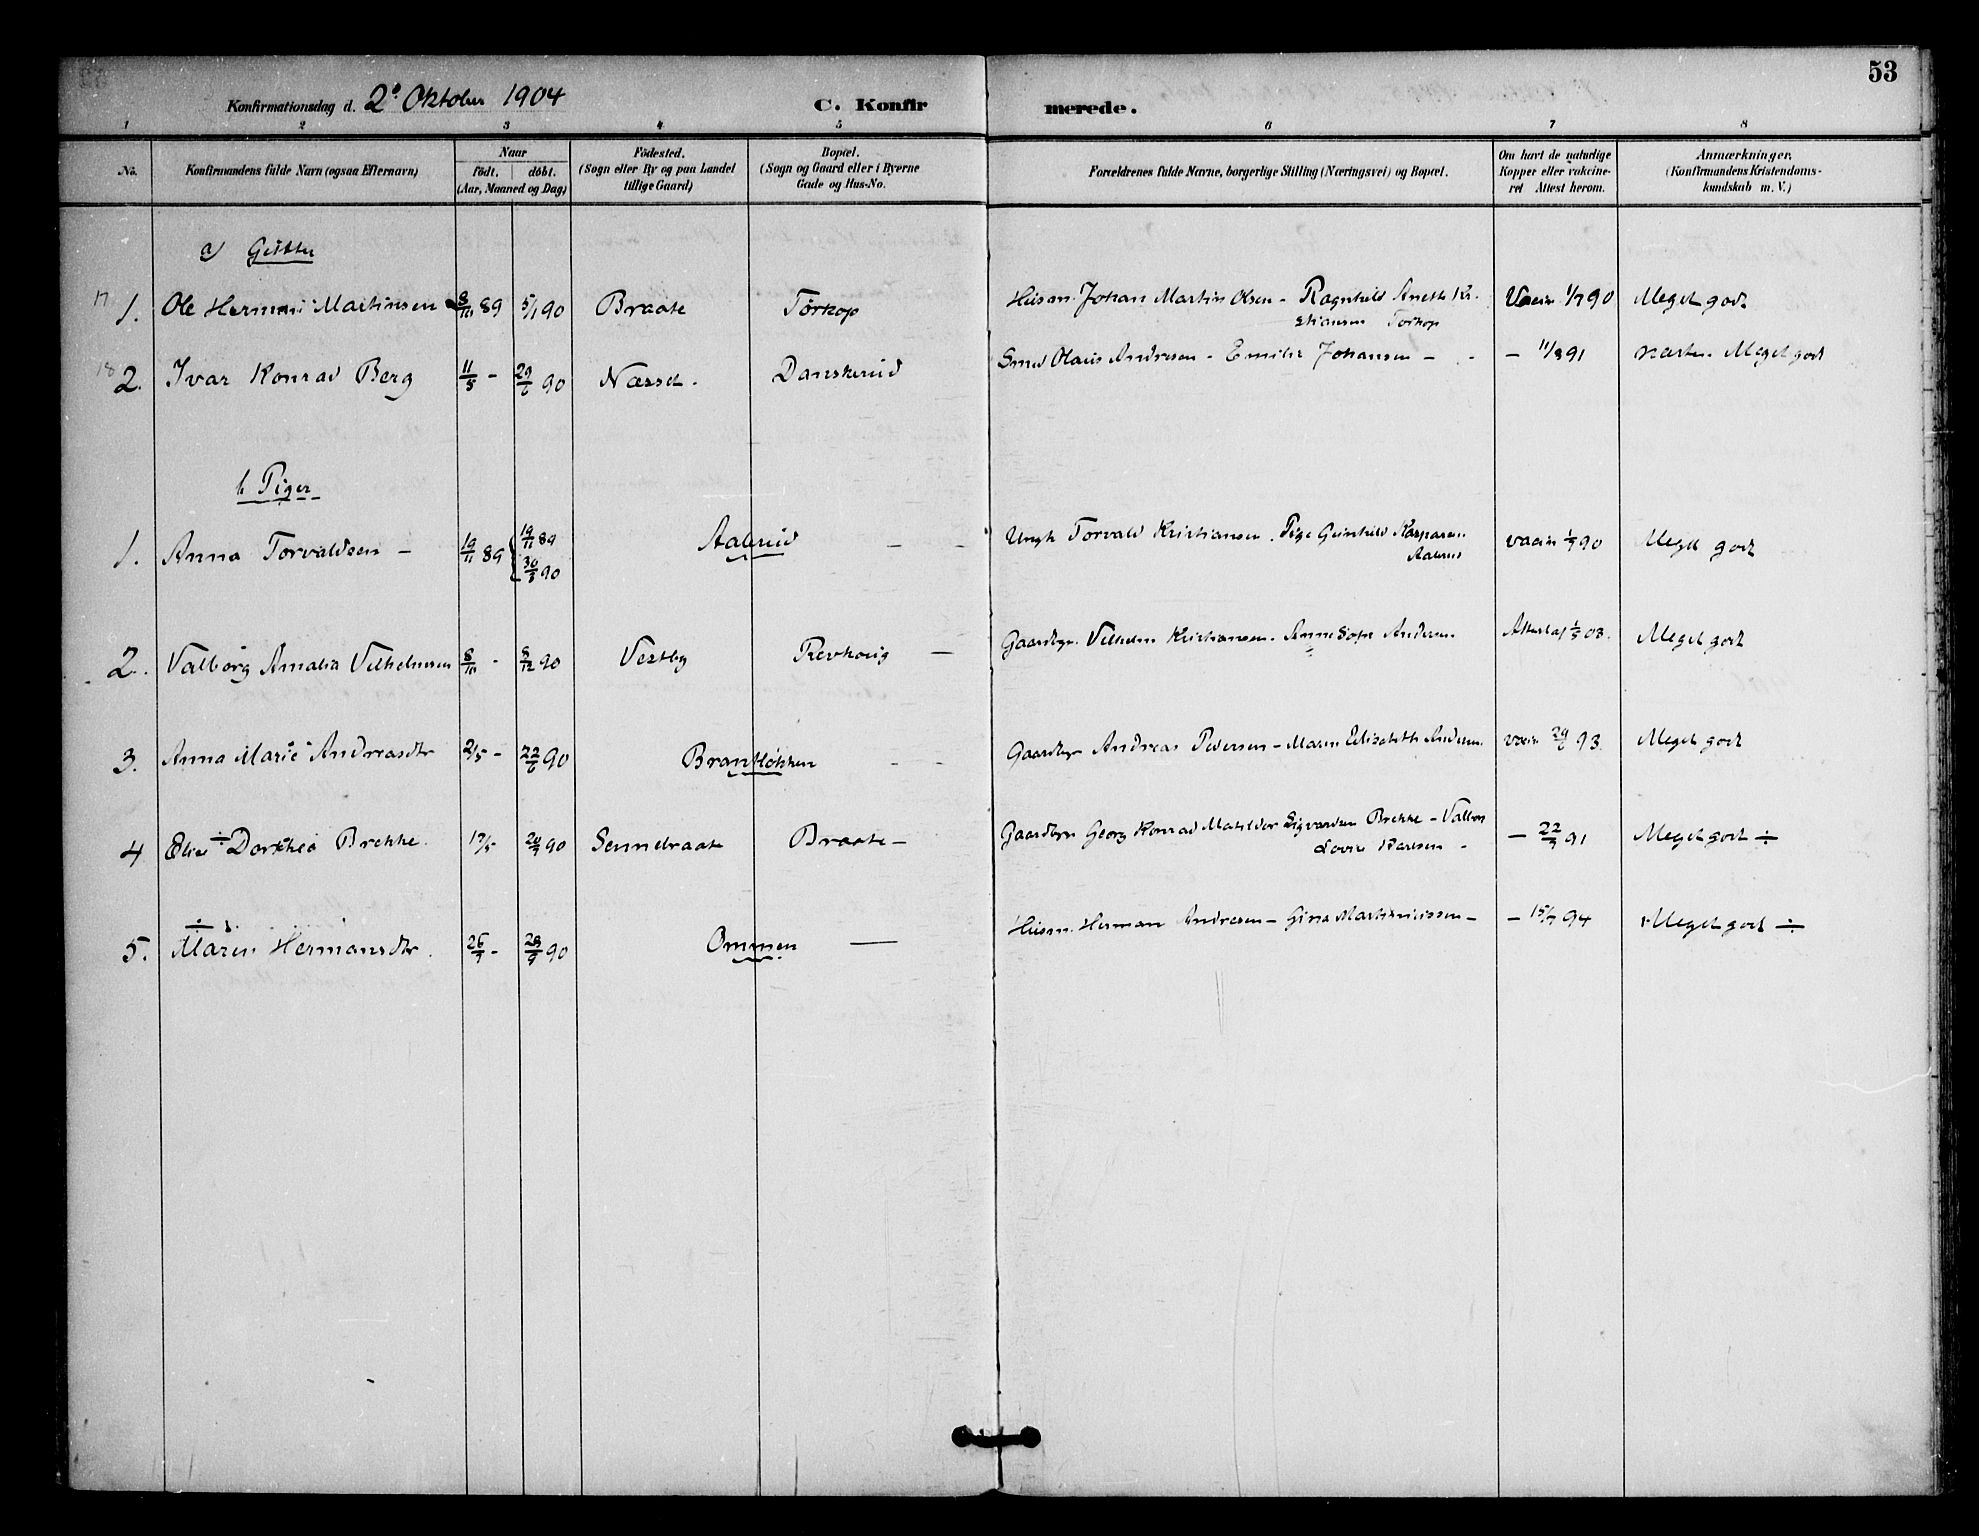 53
Konfirmationsdag d. 2 Oktober 1904 C. Konfirmerede.
1 2 3 4 5 6 7 8
No. Konfirmandens fulde Navn (ogsaa Efternavn) Naar født. døbt. (Aar, Maaned og Dag) Fødested. (Sogn eller By og paa Landet tillige Gaard) Bopæl. (Sogn og Gaard eller i Byerne Gade og Hus-No. Forældrenes fulde Navne, borgerlige Stilling (Næringsvei) og Bopæl. Om havt de naturlige Kopper eller vakcineret Attest herom. Anmærkninger. (Konfirmandens Kristendomskundskab m. V.)
a) Gutter
17 1. Ole Herman Martinsen 8/10 89 5/1 90 Braate Torkop Husm. Johan Martin Olsen - Ragnhild Anette Kristiansen Torkop Vaccin 1/7 90 Meget godt
18 2. Ivar Konrad Berg 11/5 - 29/6 90 Næsset. Danskerud Smed Olaus Andresen - Emilie Johansen - - - 11/8 91 næsten Meget godt
b Piger
1. Anna Torvaldsen - 19/11 89 19/11 89 30/3 90 Aalerud - - Ungk Torvald Kristiansen. Pige Gunhild Kaspersen Aalerud vaccin 1/7 90 Meget godt
2. Valborg Amalia Vilhelmsen 8/10 - 8/12 90 Vestby Revhoug - Gaardbr. Vilhelm Kristiansen - Anne Sofie Andersen 03. Meget godt
3. Anna Marie Andreasdtr 2/5 - 22/6 90 Brantløkken - - Gaardbr Andreas Pedersen - Maren Elisabeth Andersen. vaccin 29/6 93. Meget godt
4 Dorthea Brekke. 17/5 90 Braate - Gaardbr Georg Konrad Matildor Sigvardsen Brekke - - 22/9 91 Meget godt ÷
5. Maren Hermansdtr. 26/7 - 28/9 90 Ommen — Husm. Herman Andresen - Gina - - 15/7 94 Meget godt ÷